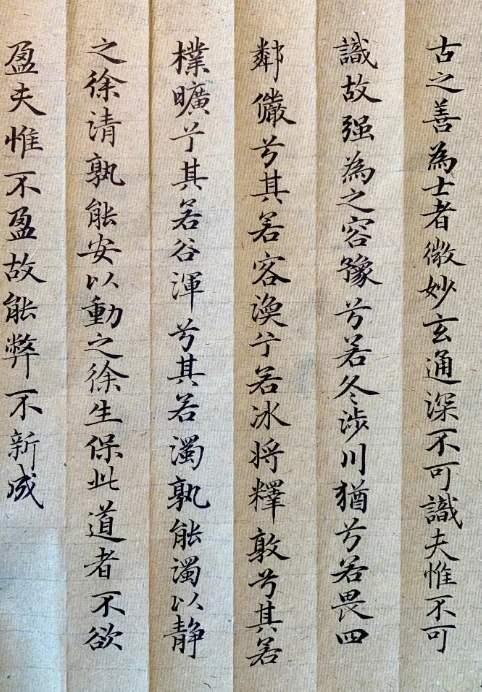 古之善為士者微妙玄通深不可識夫惟不可
識故强為之容豫兮若冬涉川猶兮若畏四
鄰儼兮其若容渙兮若冰將釋敦兮其若
樸曠兮其若谷渾兮其若濁孰能濁以静
之徐清孰能安以動之徐生保此道者不欲
盈夫惟不盈故能弊不新成